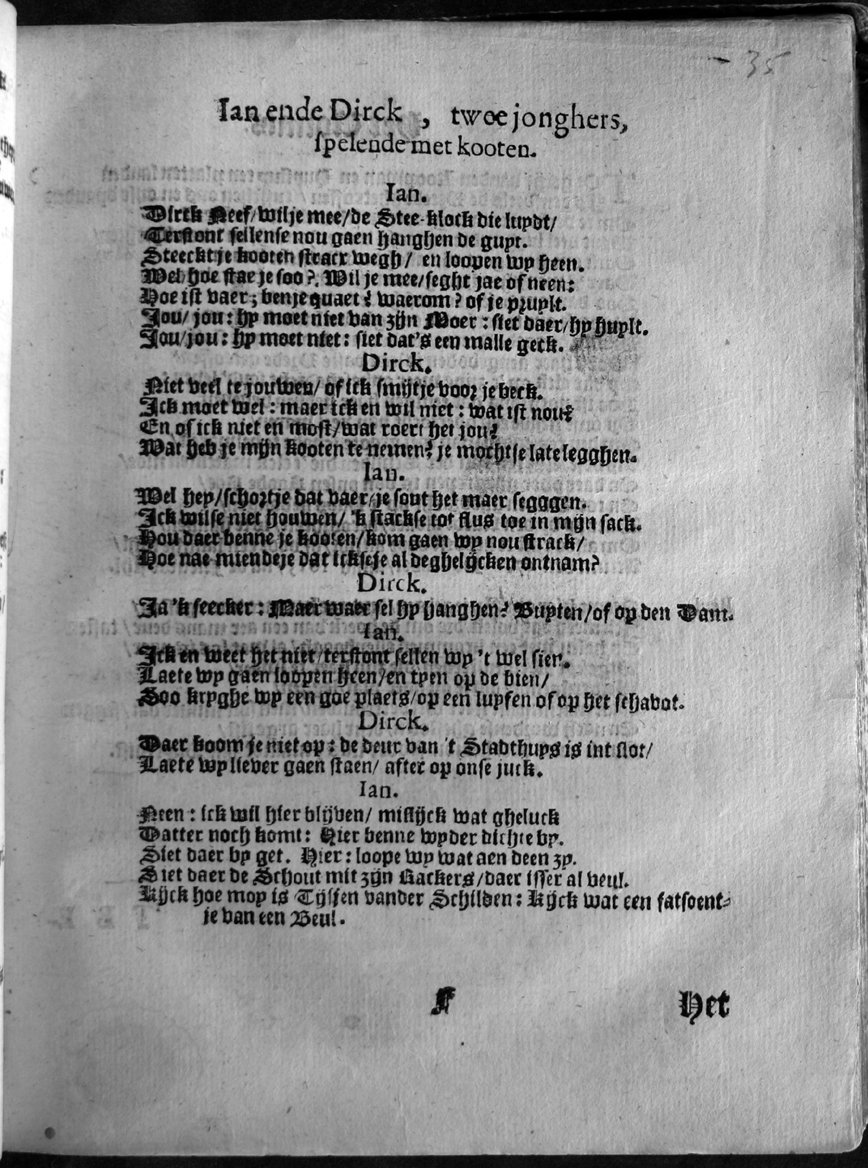 35
Ian ende Dirck, twee jonghers,
spelende met kooten.
Ian.
Dirck Neef/wil je mee/de Stee-klock die luydt/
Terstont sellense nou gaen hanghen de guyt.
Steeckt je kooten stracx wegh/ en loopen wy heen.
Wel hoe stae je soo? Wil je mee/seght jae of neen:
Hoe ist vaer; ben je quaet? waerom? of je pruylt.
Jou/jou: hy moet niet van zijn Moer: siet daer/hy huylt.
Jou/jou: hy moet niet: siet dat's een malle geck.
Dirck.
Niet veel te jouwen/ of ick smijtje voor je beck.
Ick moet wel: maer ick en wil niet: wat ist nou?
En of ick niet en most/wat roert het jou?
Wat heb je mijn kooten te nemen? je mochtse late legghen.
Ian.
Wel hey/schortje dat vaer/je sout het maer segggen.
Ick wilse niet houwen/ 'k stackse tot flus toe in mijn sack.
Hou daer benne je kooten/kom gaen wy nou strack/
Hoe nae miende je dat ickseje al deghelijcken ontnam?
Dirck.
Ja 'k seecker: Maer waer sel hy hanghen? Buyten/of op den Dam.
Ian.
Ick en weet het niet/terstont sellen wy 't wel sien.
Laete wy gaen loopen heen/en tyen op de bien/
Soo kryghe wy een goe plaets/op een luyfen of op het schavot.
Dirck.
Daer koom je niet op: de deur van 't Stadthuys is int slot/
Laete wy liever gaen staen/ after op onse juck.
Ian.
Neen: ick wil hier blijven/ mislijck wat gheluck
Datter noch komt: Hier benne wyder dichte by.
Siet daer by get. Hier: loope wy wat aen deen zy.
Siet daer de Schout mit zijn Rackers/daer isser al veul.
Kijck hoe mop is Tijssen vander Schilden: Kijck wat een fatsoent-
je van een Beul.
F Het